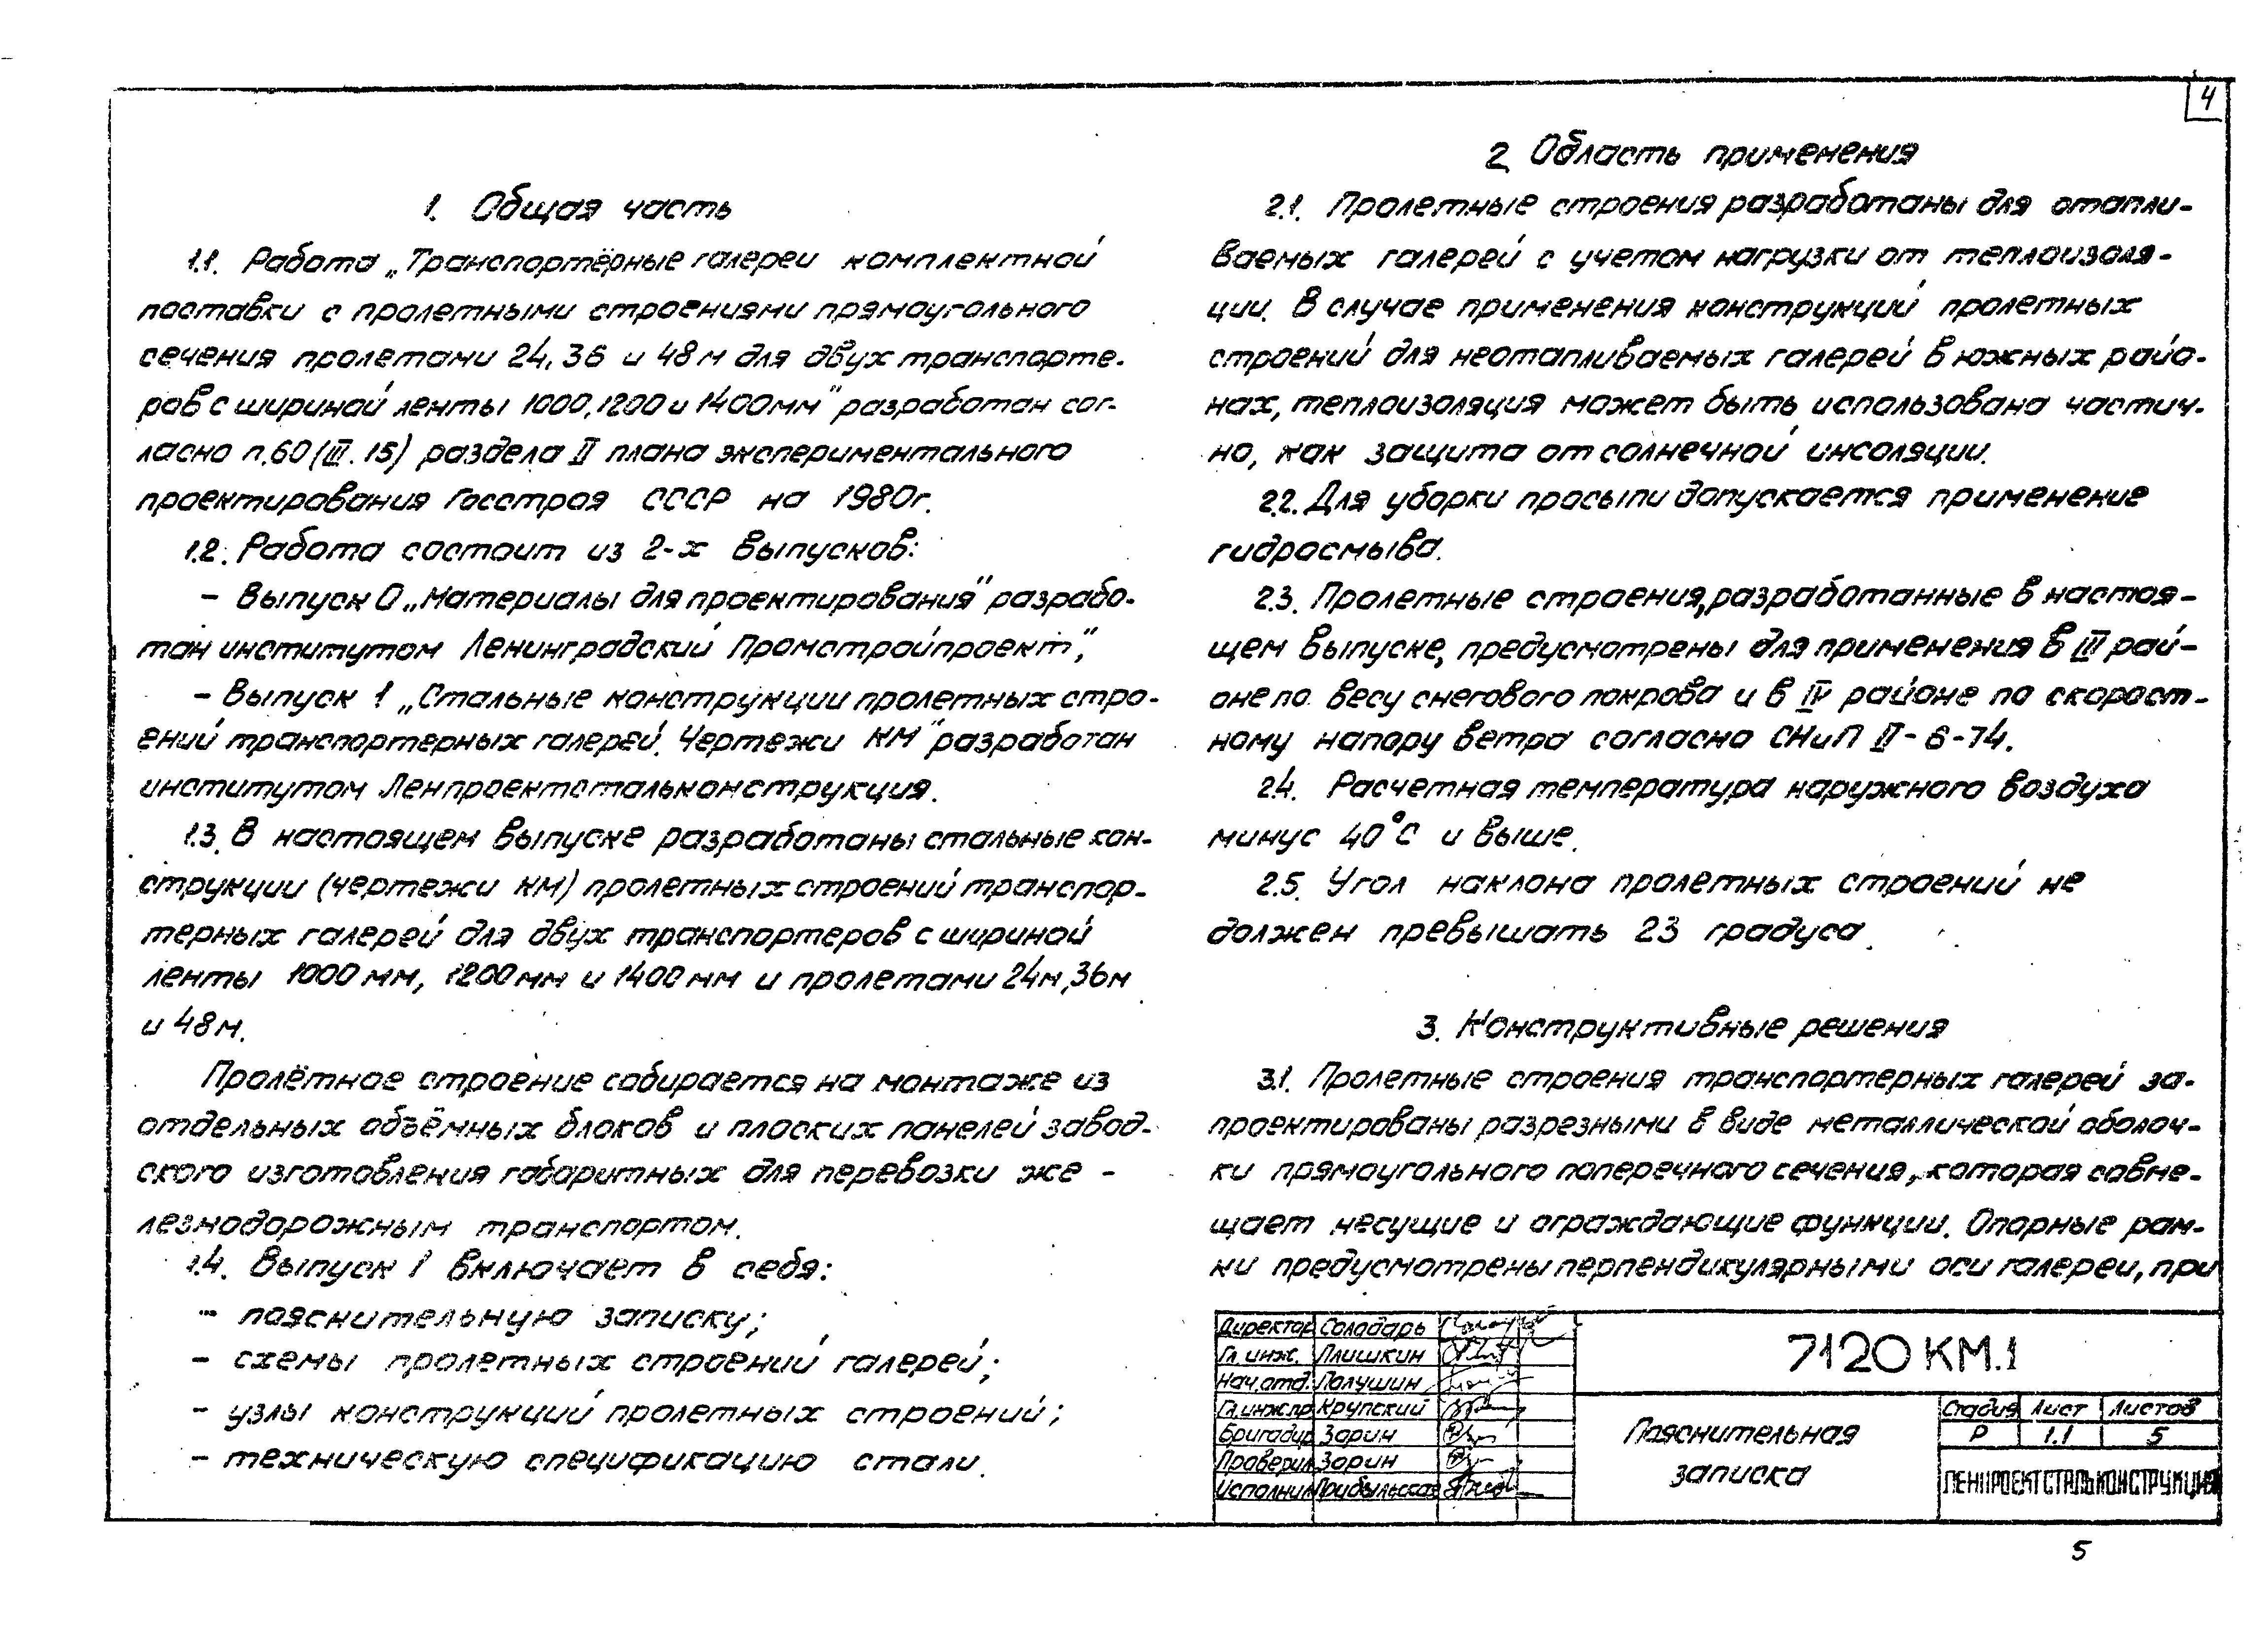 4
1. Общая часть
1.1. Работа „Транспортёрные галереи комплектной
поставки с пролетными строениями прямоугольного
сечения пролетами 24, 36 и 48м для двух транспорте-
ров с шириной ленты 1000, 1200 и 1400мм" разработан сог-
ласно п.60 (III. 15) раздела II плана экспериментального
проектирования Госстроя СССР на 1980г.
1.2. Работа состоит из 2-х выпусков:
- Выпуск 0 „Материалы для проектирования" разрабо-
тан институтом Ленинградский Промстройпроект",
- Выпуск 1 „Стальные конструкции пролетных стро-
ений транспортерных галерей. Чертежи КМ" разработан
институтом Ленпроектстальконструкция.
1.3. В настоящем выпуске разработаны стальные кон-
струкции (чертежи КМ) пролетных строений транспор-
терных галерей для двух транспортеров с шириной
ленты 1000 мм, 1200 мм и 1400 мм и пролетами 24м, 36м
и 48м.
Пролётное строение собирается на монтаже из
отдельных объёмных блоков и плоских панелей завод-
ского изготовления габаритных для перевозки же-
лезнодорожным транспортом.
1.4. Выпуск 1 включает в себя:
- пояснительную записку;
- схемы пролетных строений галерей;
- узлы конструкций пролетных строений;
- техническую спецификацию стали.
2 Область применения
2.1. Пролетные строения разработаны для отапли-
ваемых галерей с учетом нагрузки от теплоизоля-
ции. В случае применения конструкций пролетных
строений для неотапливаемых галерей в южных райо-
нах, теплоизоляция может быть использована частич-
но, как защита от солнечной инсоляции.
2.2. Для уборки просыпи допускается применение
гидросмыва.
2.3. Пролетные строения, разработанные в настоя-
щем выпуске, предусмотрены для применения в III рай-
оне по весу снегового покрова и в IV районе по скорост-
ному напору ветра согласно СНиП II-6-74.
2.4. Расчетная температура наружного воздуха
минус 40°С и выше.
2.5. Угол наклона пролетных строений не
должен превышать 23 градуса.
3. Конструктивные решения
3.1. Пролетные строения транспортерных галерей за-
проектированы разрезными в виде металлической оболоч-
ки прямоугольного поперечного сечения, которая совме-
щает несущие и ограждающие функции. Опорные рам-
ки предусмотрены перпендикулярными оси галереи, при
Директор Солодарь
Гл. инж. Плишкин
Нач. отд. Полушин
Гл. инж.пр. Крупский
Бригадир Зорин
Проверил Зорин
Исполнил Прибыльская
7120 КМ.1
Пояснительная
записка
Стадия Лист Листов
Р 1.1 5
ЛЕНПРОЕКТСТАЛЬКОНСТРУКЦИЯ
5